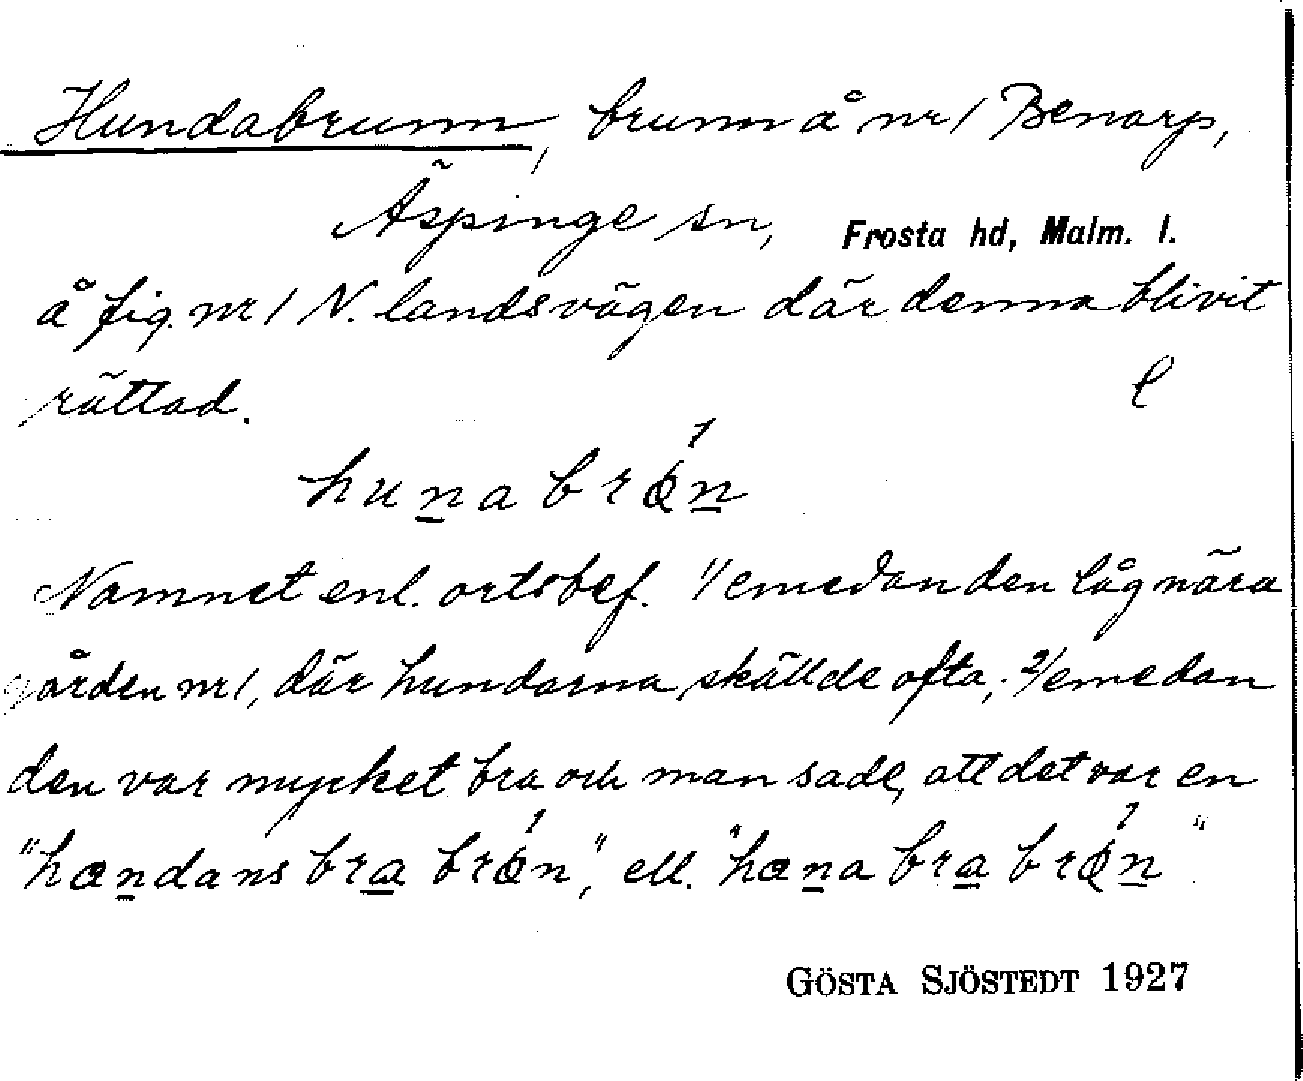 Hundabrunn, brunn å nr 1 Benarp,
Äspinge sn, Frosta hd, Malm. l.
å fig. nr 1 N. landsvägen där denna blivit
rättad.
hunabrǿn
Namnet enl. ortsbef. 1/ emedan den låg nära
gården nr 1, där hundarna skällde ofta, 2/ emedan
den var mycket bra och man sade, att det var en
"hœndans bra brǿn", ell. "hœna bra brǿn"
GÖSTA SJÖSTEDT 1927